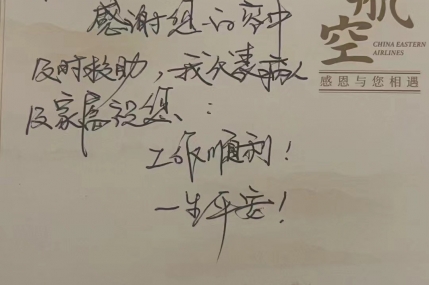 感谢您的空中
及时救助，我代表病人
及家属祝您：
工作顺利！
一生平安！
航空
CHINA EASTERN
AIRLINES
感恩与您相遇